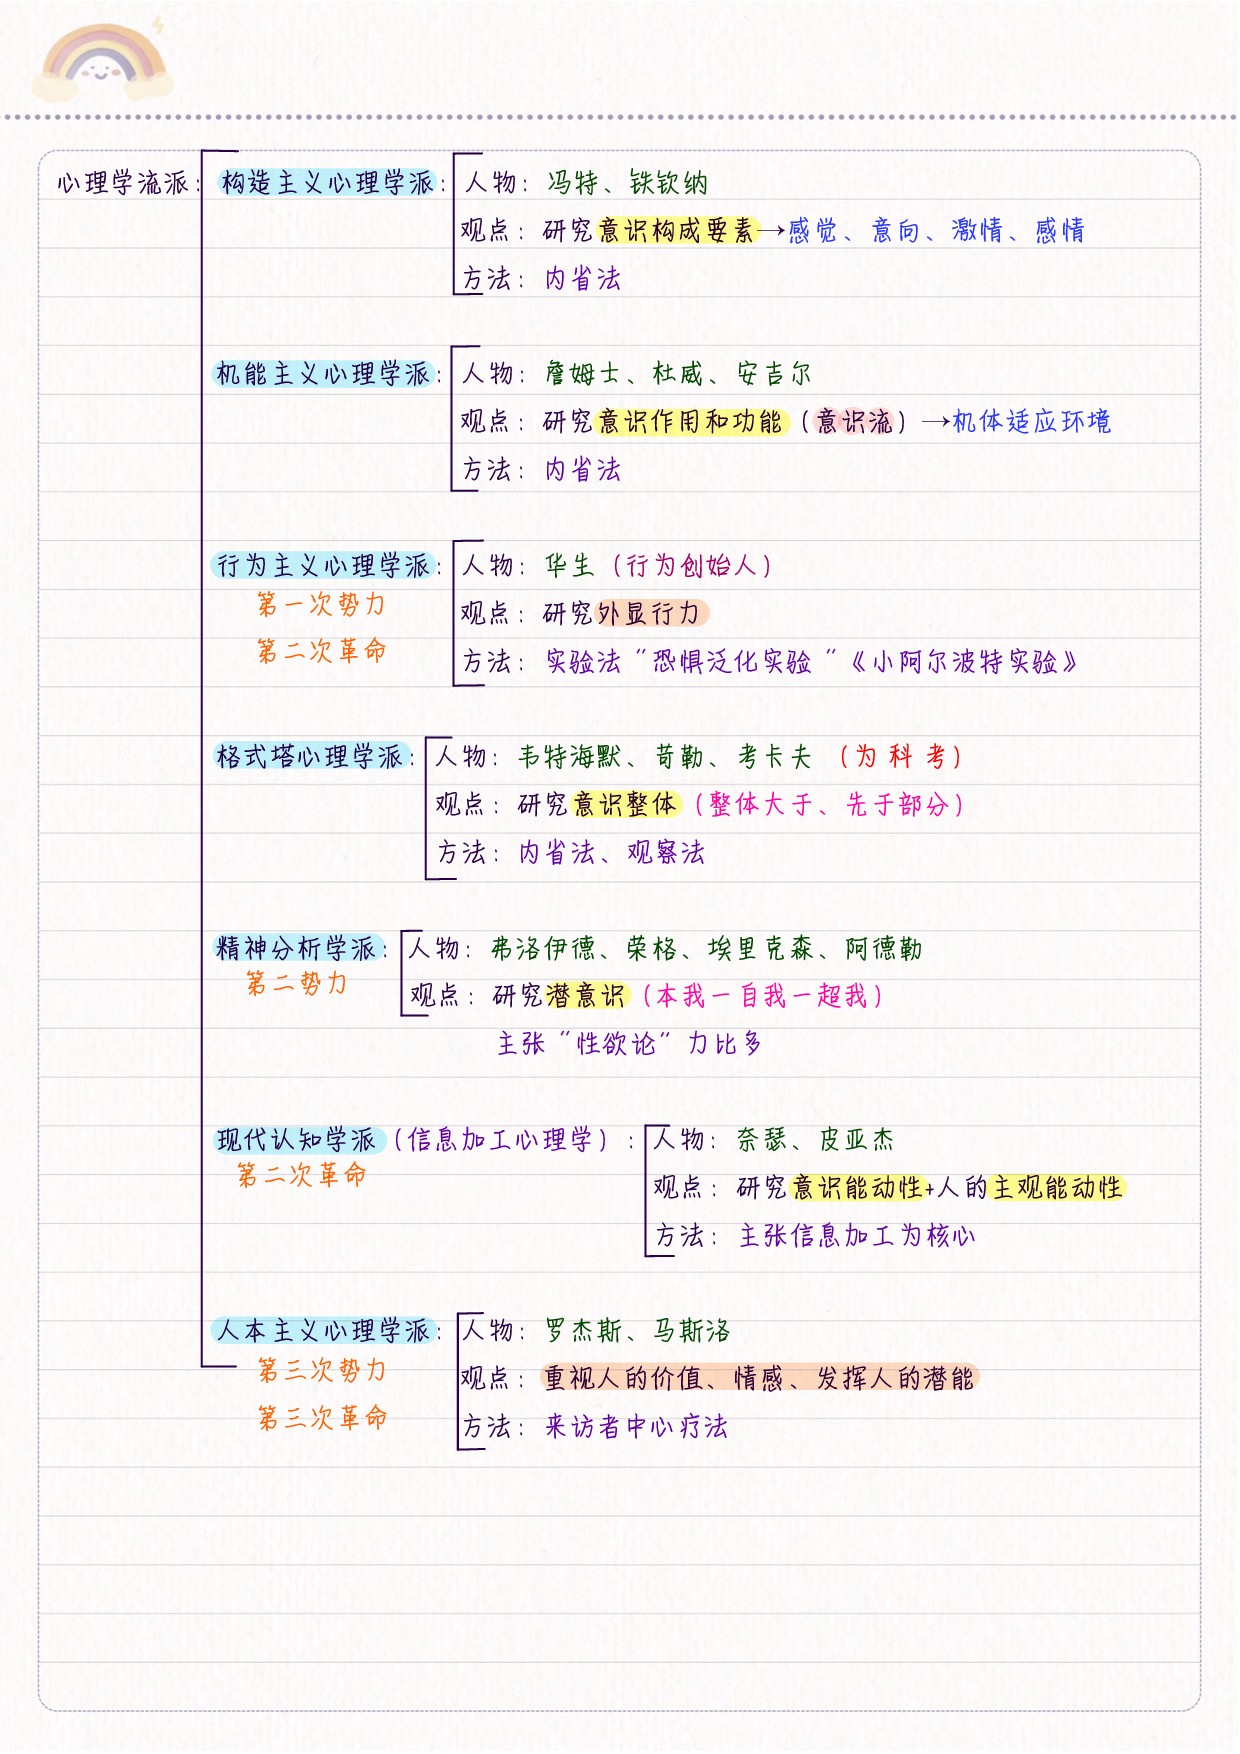 心理学流派：构造主义心理学派：人物：冯特、铁钦纳
观点：研究意识构成要素→感觉、意向、激情、感情
方法：内省法
机能主义心理学派：人物：詹姆士、杜威、安吉尔
观点：研究意识作用和功能（意识流）→机体适应环境
方法：内省法
行为主义心理学派：人物：华生（行为创始人）
第一次势力
观点：研究外显行力
第二次革命
方法：实验法“恐惧泛化实验”《小阿尔波特实验》
格式塔心理学派：人物：韦特海默、苛勒、考卡夫（为科考）
观点：研究意识整体（整体大于、先于部分）
方法：内省法、观察法
精神分析学派：人物：弗洛伊德、荣格、埃里克森、阿德勒
第二势力
观点：研究潜意识（本我一自我一超我）
主张“性欲论”力比多
现代认知学派（信息加工心理学）：人物：奈瑟、皮亚杰
第二次革命
观点：研究意识能动性+人的主观能动性
方法：主张信息加工为核心
人本主义心理学派：人物：罗杰斯、马斯洛
第三次势力
观点：重视人的价值、情感、发挥人的潜能
第三次革命
方法：来访者中心疗法